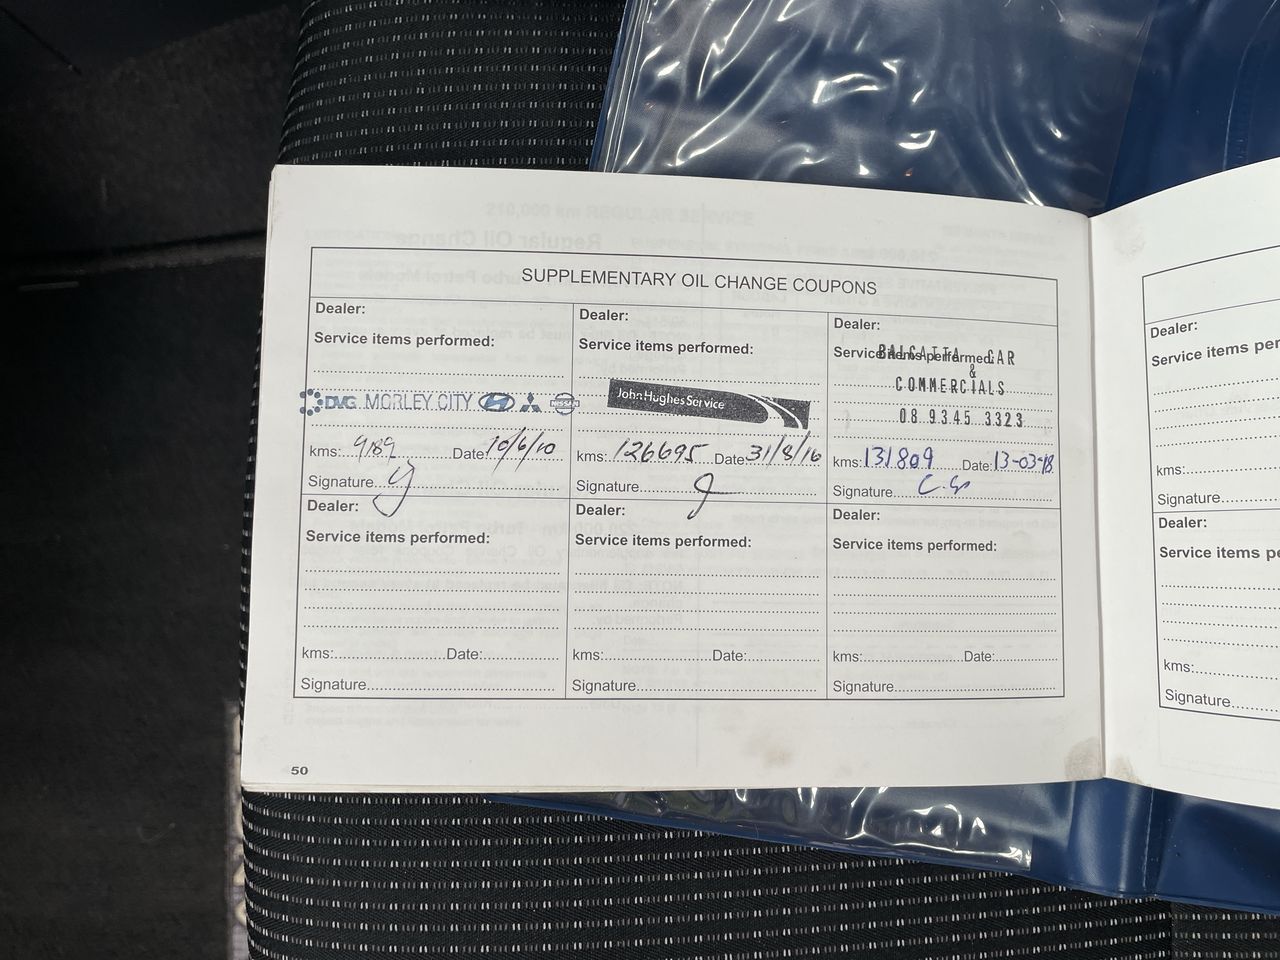 SUPPLEMENTARY OIL CHANGE COUPONS
Dealer:
Service items performed:
DVG MORLEY CITY NISSAN
kms: 9189 Date: 10/6/10
Signature
Dealer:
Service items performed:
John Hughes Service
kms: 126695 Date: 31/8/16
Signature
Dealer:
Service items performed:
BALCATTA CAR
&
COMMERCIALS
08 9345 3323
kms: 131809 Date: 13-03-18
Signature
Dealer:
Service items performed:
kms: Date:
Signature
Dealer:
Service items performed:
kms: Date:
Signature
Dealer:
Service items performed:
kms: Date:
Signature
50
Dealer:
Service items per
kms:
Signature
Dealer:
Service items pe
kms:
Signature